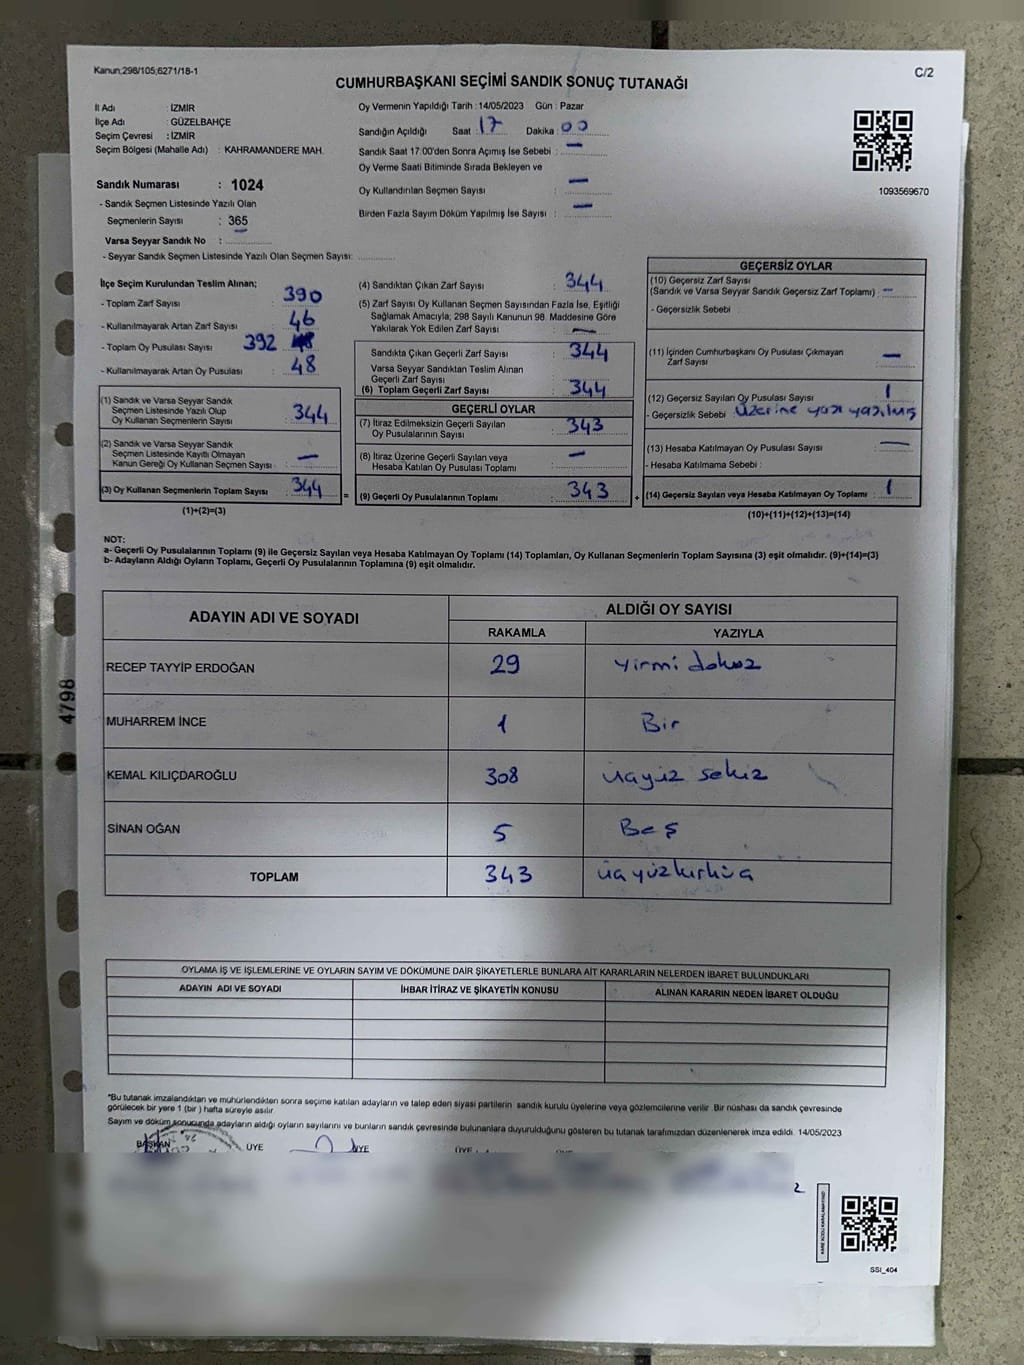 Kanun;298/105;6271/18-1
C/2
CUMHURBAŞKANI SEÇİMİ SANDIK SONUÇ TUTANAĞI
İl Adı : İZMİR
İlçe Adı : GÜZELBAHÇE
Seçim Çevresi : İZMİR
Seçim Bölgesi (Mahalle Adı) : KAHRAMANDERE MAH.
Sandık Numarası : 1024
- Sandık Seçmen Listesinde Yazılı Olan
Seçmenlerin Sayısı : 365
Varsa Seyyar Sandık No :
- Seyyar Sandık Seçmen Listesinde Yazılı Olan Seçmen Sayısı:
Oy Vermenin Yapıldığı Tarih : 14/05/2023 Gün : Pazar
Sandığın Açıldığı Saat : 17 Dakika : 00
Sandık Saat 17:00'den Sonra Açımış İse Sebebi : —
Oy Verme Saati Bitiminde Sırada Bekleyen ve
Oy Kullandırılan Seçmen Sayısı : —
Birden Fazla Sayım Döküm Yapılmış İse Sayısı : —
1093569670
İlçe Seçim Kurulundan Teslim Alınan;
- Toplam Zarf Sayısı : 390
- Kullanılmayarak Artan Zarf Sayısı : 46
- Toplam Oy Pusulası Sayısı : 392
- Kullanılmayarak Artan Oy Pusulası : 48
(1) Sandık ve Varsa Seyyar Sandık
Seçmen Listesinde Yazılı Olup
Oy Kullanan Seçmenlerin Sayısı : 344
(2) Sandık ve Varsa Seyyar Sandık
Seçmen Listesinde Kayıtlı Olmayan
Kanun Gereği Oy Kullanan Seçmen Sayısı : —
(3) Oy Kullanan Seçmenlerin Toplam Sayısı : 344
(1)+(2)=(3)
=
(4) Sandıktan Çıkan Zarf Sayısı : 344
(5) Zarf Sayısı Oy Kullanan Seçmen Sayısından Fazla İse, Eşitliği
Sağlamak Amacıyla; 298 Sayılı Kanunun 98. Maddesine Göre
Yakılarak Yok Edilen Zarf Sayısı : —
Sandıkta Çıkan Geçerli Zarf Sayısı : 344
Varsa Seyyar Sandıktan Teslim Alınan
Geçerli Zarf Sayısı :
(6) Toplam Geçerli Zarf Sayısı : 344
GEÇERLİ OYLAR
(7) İtiraz Edilmeksizin Geçerli Sayılan
Oy Pusulalarının Sayısı : 343
(8) İtiraz Üzerine Geçerli Sayılan veya
Hesaba Katılan Oy Pusulası Toplamı : —
(9) Geçerli Oy Pusulalarının Toplamı : 343
+
GEÇERSİZ OYLAR
(10) Geçersiz Zarf Sayısı
(Sandık ve Varsa Seyyar Sandık Geçersiz Zarf Toplamı) : —
- Geçersizlik Sebebi :
(11) İçinden Cumhurbaşkanı Oy Pusulası Çıkmayan
Zarf Sayısı : —
(12) Geçersiz Sayılan Oy Pusulası Sayısı : 1
- Geçersizlik Sebebi : Üzerine yazı yazılmış
(13) Hesaba Katılmayan Oy Pusulası Sayısı : —
- Hesaba Katılmama Sebebi :
(14) Geçersiz Sayılan veya Hesaba Katılmayan Oy Toplamı : 1
(10)+(11)+(12)+(13)=(14)
NOT:
a- Geçerli Oy Pusulalarının Toplamı (9) ile Geçersiz Sayılan veya Hesaba Katılmayan Oy Toplamı (14) Toplamları, Oy Kullanan Seçmenlerin Toplam Sayısına (3) eşit olmalıdır. (9)+(14)=(3)
b- Adayların Aldığı Oyların Toplamı, Geçerli Oy Pusulalarının Toplamına (9) eşit olmalıdır.
ADAYIN ADI VE SOYADI ALDIĞI OY SAYISI
RAKAMLA YAZIYLA
RECEP TAYYİP ERDOĞAN 29 yirmi dokuz
MUHARREM İNCE 1 Bir
KEMAL KILIÇDAROĞLU 308 üçyüz sekiz
SİNAN OĞAN 5 Beş
TOPLAM 343 üçyüzkırküç
OYLAMA İŞ VE İŞLEMLERİNE VE OYLARIN SAYIM VE DÖKÜMÜNE DAİR ŞİKAYETLERLE BUNLARA AİT KARARLARIN NELERDEN İBARET BULUNDUKLARI
ADAYIN ADI VE SOYADI İHBAR İTİRAZ VE ŞİKAYETİN KONUSU ALINAN KARARIN NEDEN İBARET OLDUĞU
*Bu tutanak imzalandıktan ve mühürlendikten sonra seçime katılan adayların ve talep eden siyasi partilerin sandık kurulu üyelerine veya gözlemcilerine verilir. Bir nüshası da sandık çevresinde
görülecek bir yere 1 (bir) hafta süreyle asılır.
Sayım ve döküm sonucunda adayların aldığı oyların sayılarını ve bunların sandık çevresinde bulunanlara duyurulduğunu gösteren bu tutanak tarafımızdan düzenlenerek imza edildi. 14/05/2023
BAŞKAN ÜYE ÜYE ÜYE
SSI_404
4798